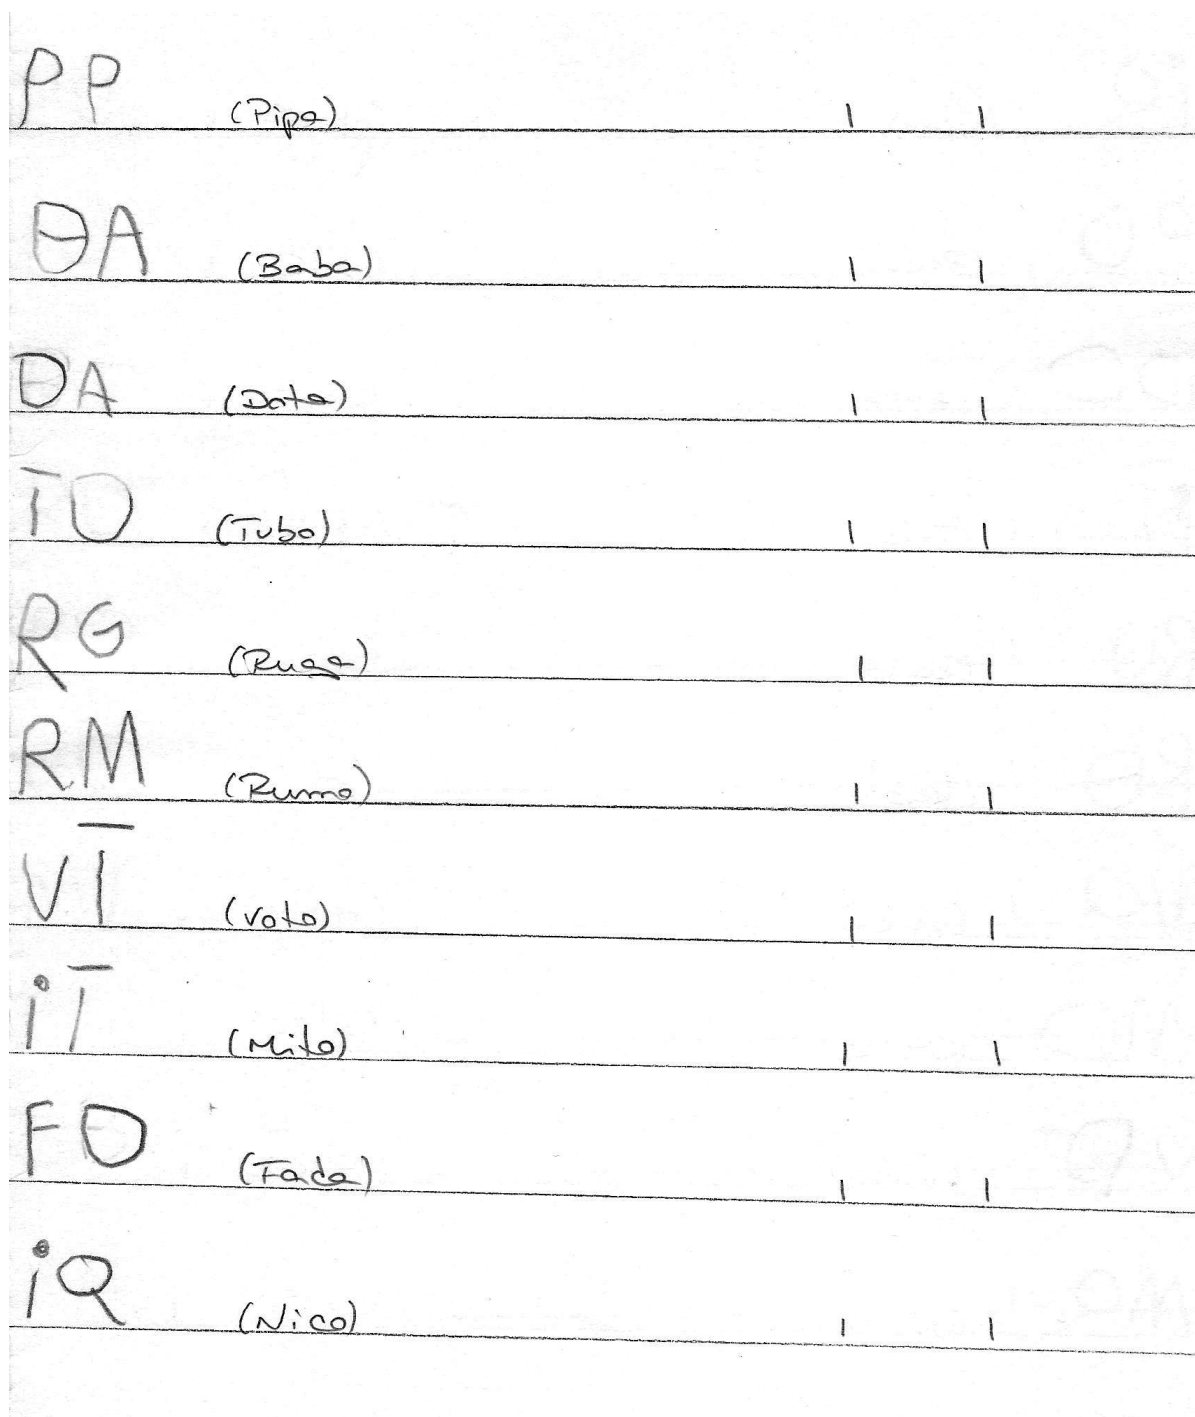 PP (Pipa) | |
BA (Baba) | |
DA (Data) | |
TO (Tubo) | |
RG (Ruga) | |
RM (Rumo) | |
VT (Voto) | |
iT (Mito) | |
FD (Fada) | |
iQ (Nico) | |